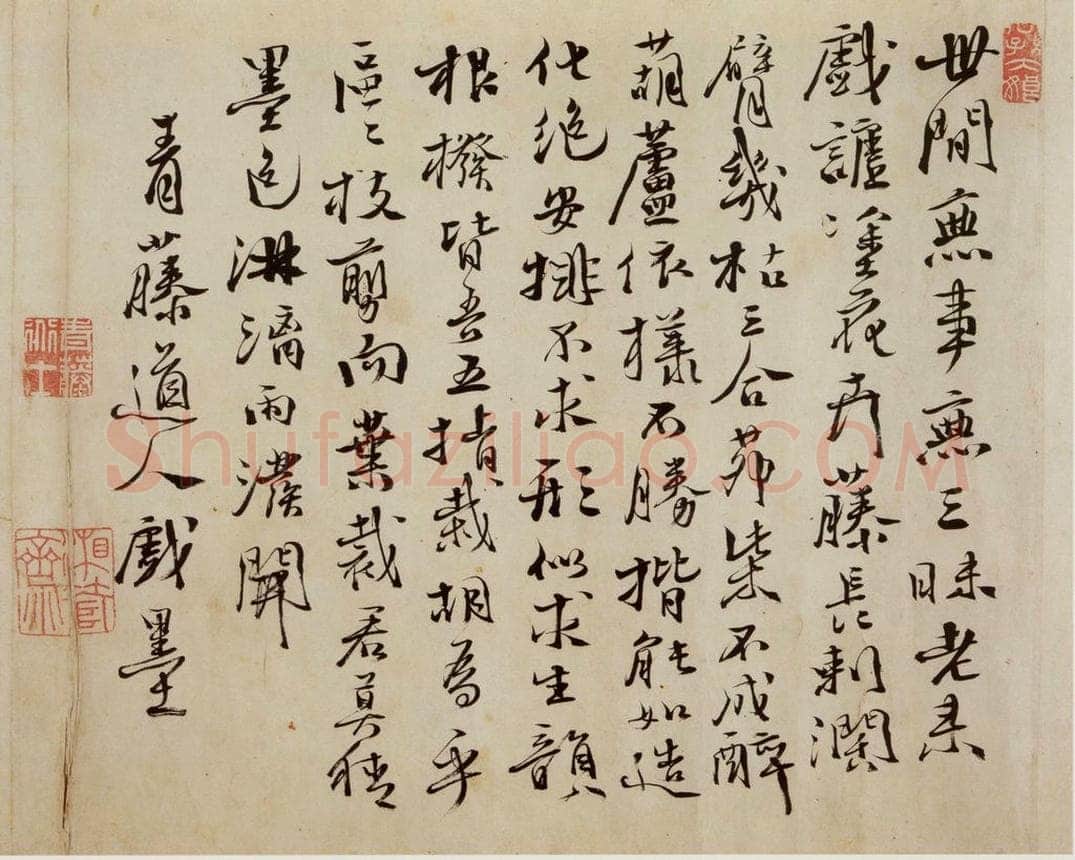 世間無事無三昧老来
戲謔塗花卉藤長刺濶
臂幾枯三合茅柴不成醉
葫蘆依樣不勝揩能如造
化絶安排不求形似求生韻
根撥皆吾五指栽胡為乎
區〻枝剪而葉裁君莫猜
墨色淋漓雨潑開
青藤道人戲墨
Shufaziliao.COM